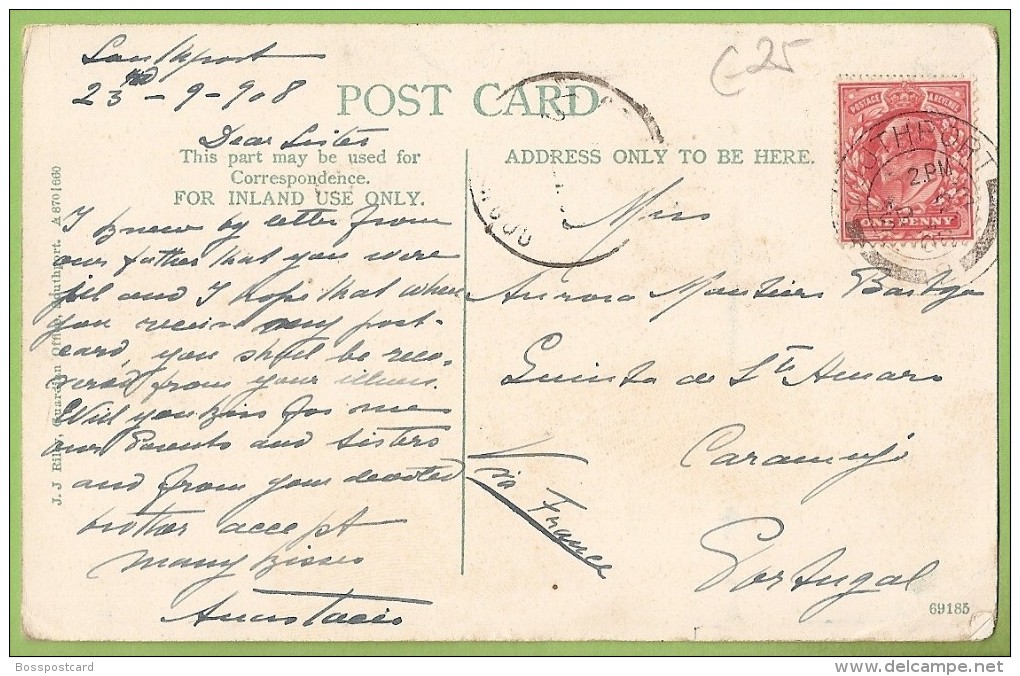 Southport
23rd - 9 - 908
POST CARD
£25
Dear Sister
This part may be used for
Correspondence.
FOR INLAND USE ONLY.
I knew by letter from
our father that you were
ill and I hope that when
you receive my post-
card, you shall be reco-
vered from your illness.
Will you kiss for me
our Parents and sisters
and from your devoted
brother accept
many kisses
Anastacio
ADDRESS ONLY TO BE HERE.
Miss
Aurora Monteiro
Quinta de Sto Amaro
Caramujo
Portugal
via France
POSTAGE & REVENUE
ONE PENNY
SOUTHPORT
2.PM
J. J Riley, Guardian Office, Southport. A 870/660
69185
Bosspostcard
delcampe.net